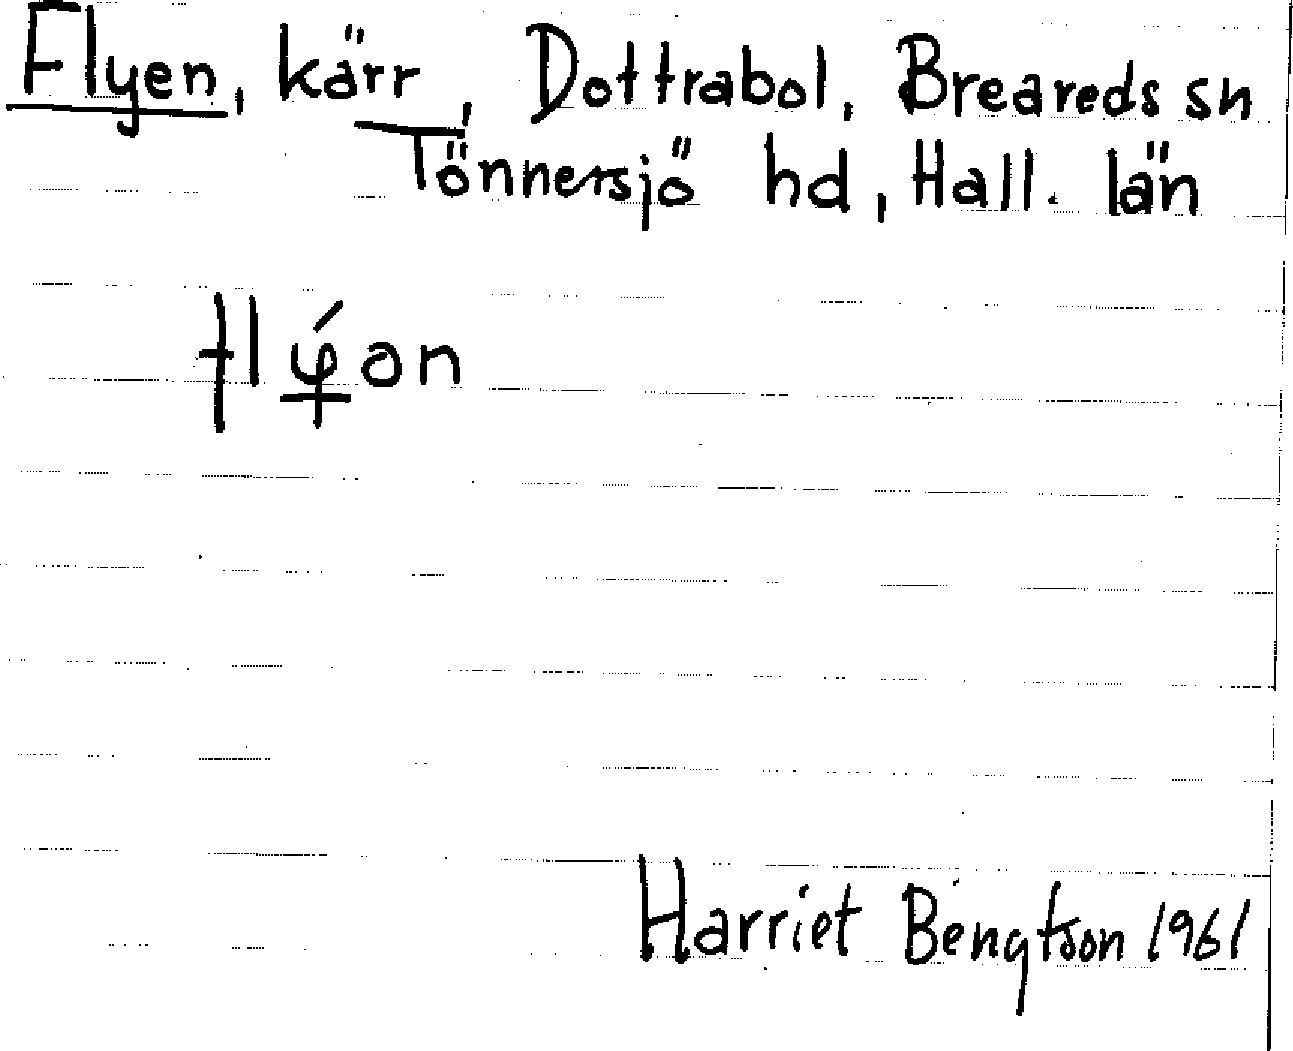 Flyen, kärr, Dottrabol, Breareds sn
Tönnersjö hd, Hall. län
Harriet Bengtson 1961